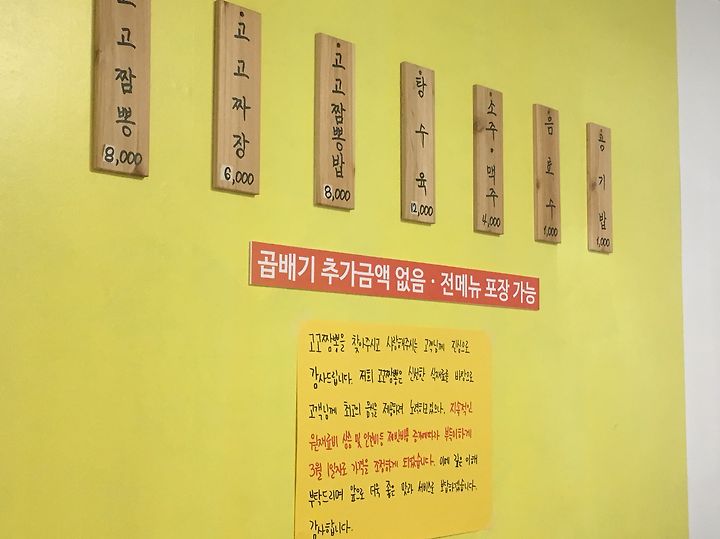 고고짬뽕
8,000
고고짜장
6,000
고고짬뽕밥
8,000
탕수육
12,000
소주·맥주
4,000
음료수
1,000
공기밥
1,000
곱배기 추가금액 없음 · 전메뉴 포장 가능
고고짬뽕을 찾아주시고 사랑해주시는 고객님께 진심으로
감사드립니다. 저희 고고짬뽕은 신선한 식재료를 바탕으로
고객님께 최고의 음식을 제공하려 노력하고있으나, 지속적인
원재료비 상승 및 인건비등 제반비용 증가에따라 부득이하게
3월 1일자로 가격을 조정하게 되었습니다. 이에 깊은 이해
부탁드리며 앞으로 더욱 좋은 맛과 서비스로 보답하겠습니다.
감사합니다.